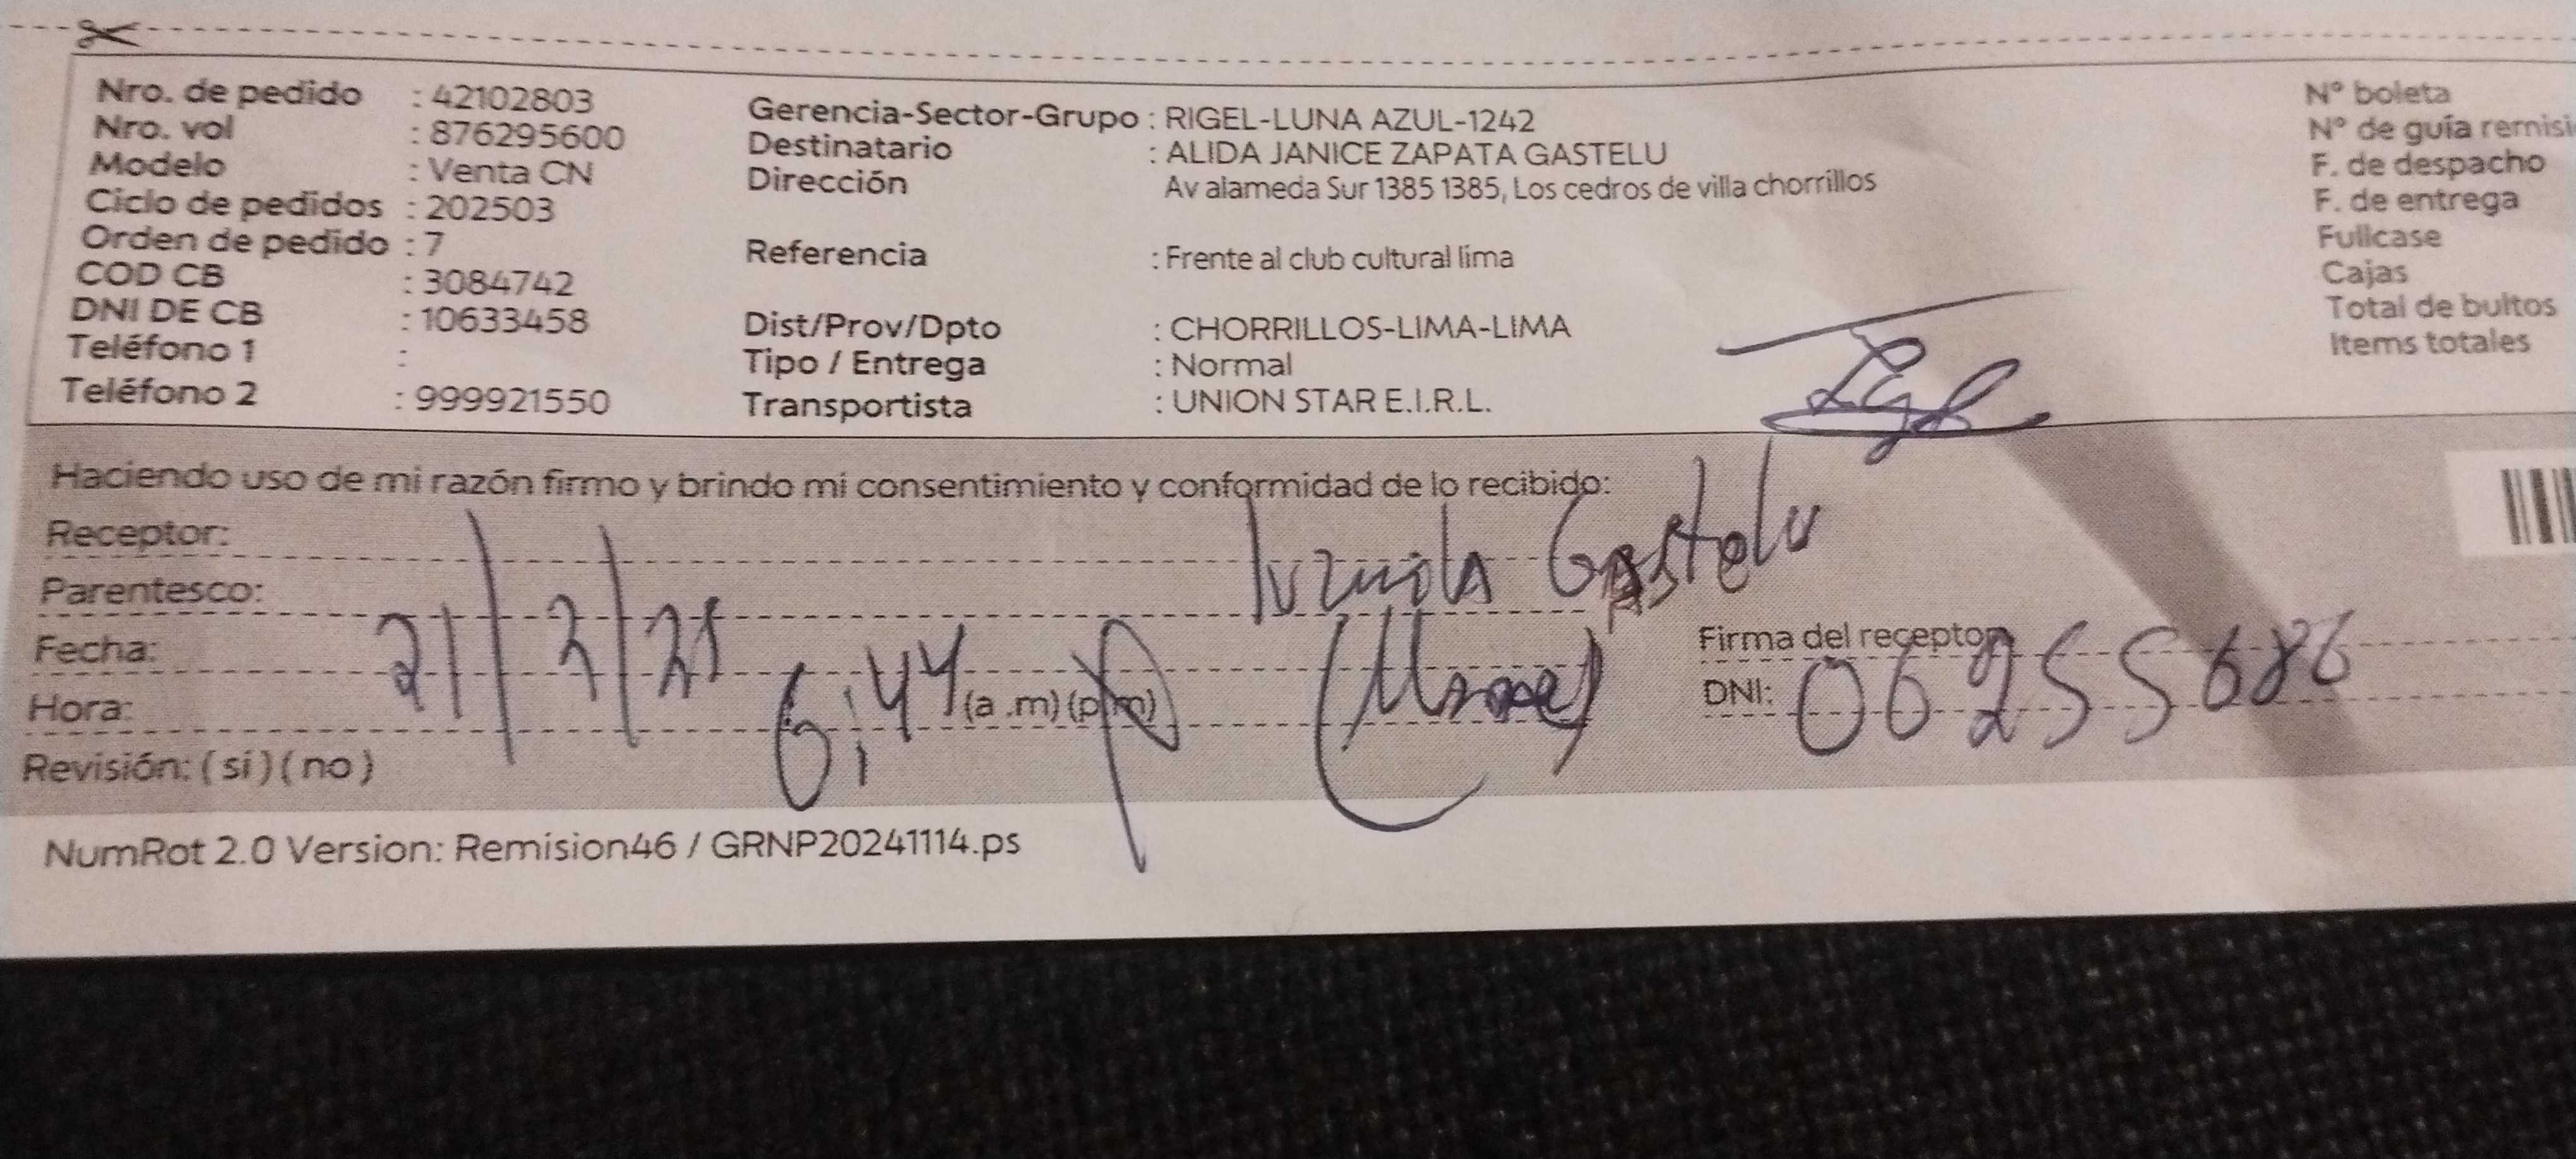 Nro. de pedido : 42102803
Nro. vol : 876295600
Modelo : Venta CN
Ciclo de pedidos : 202503
Orden de pedido : 7
COD CB : 3084742
DNI DE CB : 10633458
Teléfono 1 :
Teléfono 2 : 999921550
Gerencia-Sector-Grupo : RIGEL-LUNA AZUL-1242
Destinatario : ALIDA JANICE ZAPATA GASTELU
Dirección Av alameda Sur 1385 1385, Los cedros de villa chorrillos
Referencia : Frente al club cultural lima
Dist/Prov/Dpto : CHORRILLOS-LIMA-LIMA
Tipo / Entrega : Normal
Transportista : UNION STAR E.I.R.L.
Nº boleta
Nº de guía remisi
F. de despacho
F. de entrega
Fullcase
Cajas
Total de bultos
Items totales
Haciendo uso de mi razón firmo y brindo mi consentimiento y conformidad de lo recibido:
Receptor: Gastelu
Parentesco:
Fecha: 21/2/25
Hora: 6:44 (a .m) (p.m)
Firma del receptor
DNI: 06255686
Revisión: ( si ) ( no )
NumRot 2.0 Version: Remision46 / GRNP20241114.ps